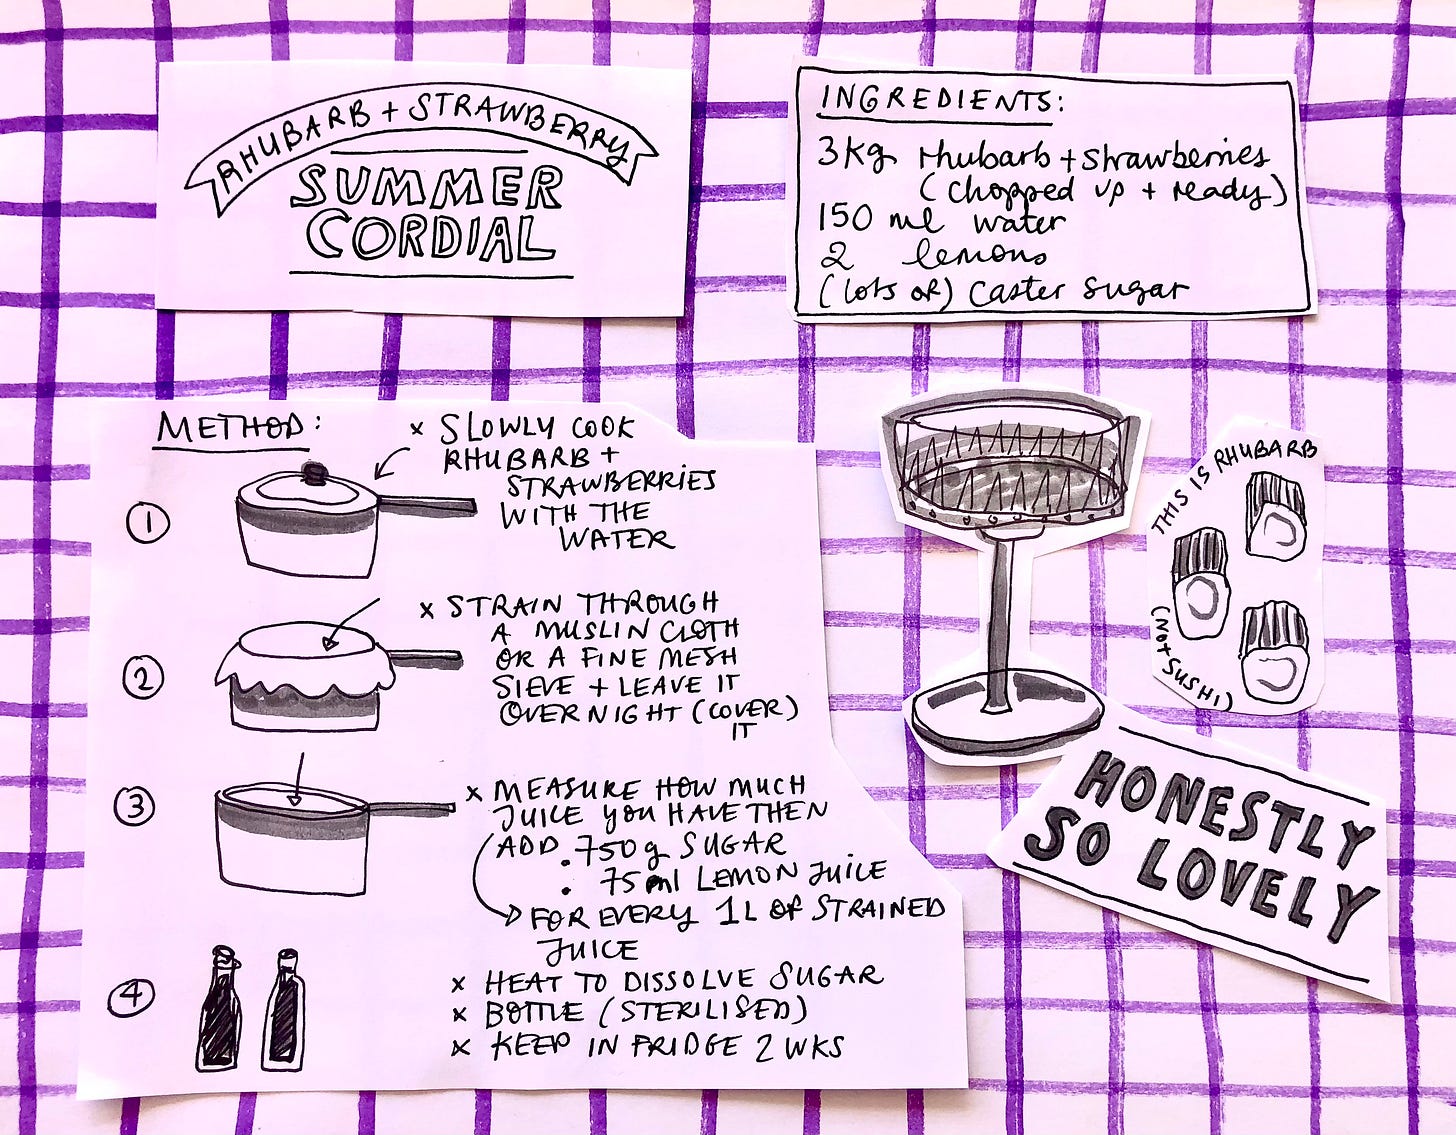 RHUBARB + STRAWBERRY
SUMMER
CORDIAL
INGREDIENTS:
3Kg rhubarb + strawberries
(chopped up + ready)
150 ml water
2 lemons
(lots of) caster sugar
METHOD:
1
x SLOWLY COOK
RHUBARB +
STRAWBERRIES
WITH THE
WATER
2
x STRAIN THROUGH
A MUSLIN CLOTH
OR A FINE MESH
SIEVE + LEAVE IT
OVERNIGHT (COVER)
IT
3
x MEASURE HOW MUCH
JUICE YOU HAVE THEN
ADD . 750g SUGAR
. 75ml LEMON JUICE
FOR EVERY 1L OF STRAINED
JUICE
4
x HEAT TO DISSOLVE SUGAR
x BOTTLE (STERILISED)
x KEEP IN FRIDGE 2 WKS
THIS IS RHUBARB
(NOT SUSHI)
HONESTLY
SO LOVELY